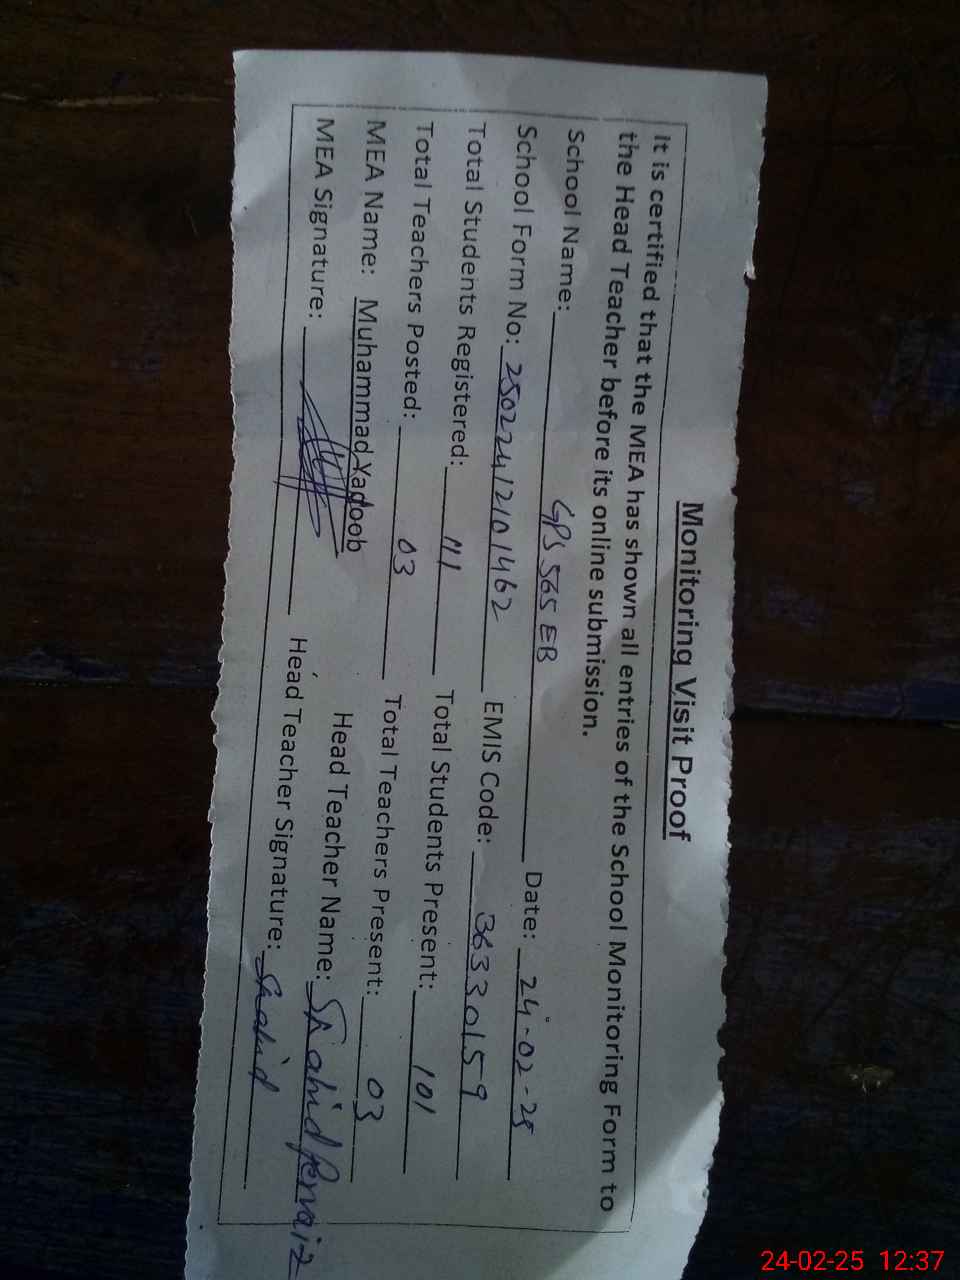 Monitoring Visit Proof
It is certified that the MEA has shown all entries of the School Monitoring Form to
the Head Teacher before its online submission.
School Name: GPS 565 EB Date: 24-02-25
School Form No: 25022412101462 EMIS Code: 36330159
Total Students Registered: 111 Total Students Present: 101
Total Teachers Posted: 03 Total Teachers Present: 03
MEA Name: Muhammad Yaqoob Head Teacher Name: Shahid Pervaiz
MEA Signature: Head Teacher Signature: Shahid
24-02-25 12:37